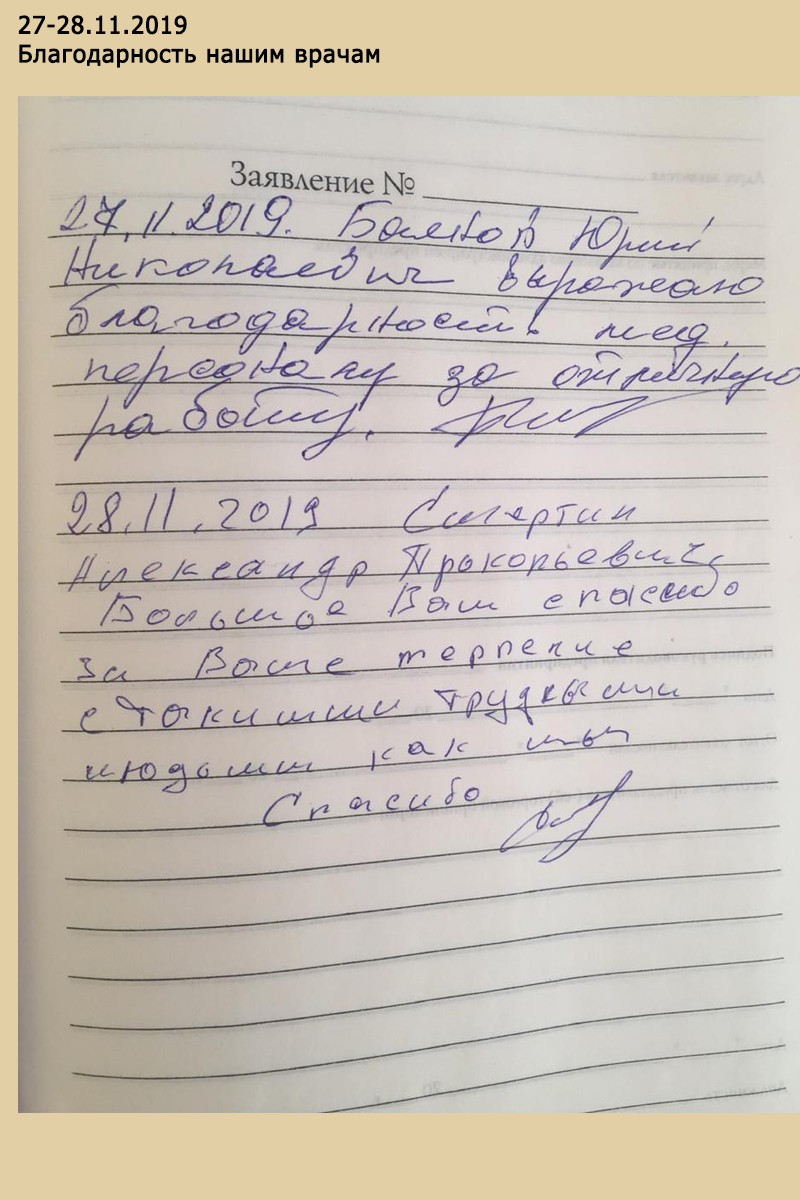 27-28.11.2019
Благодарность нашим врачам
Заявление №
27.11.2019. Юрий
Николаевич выражаю
благодарность мед.
персоналу за отличную
работу.
28.11.2019 Смертин
Александр Прокопьевич
Большое Вам спасибо
за Ваше терпение
с такими трудными
людьми как мы
Спасибо